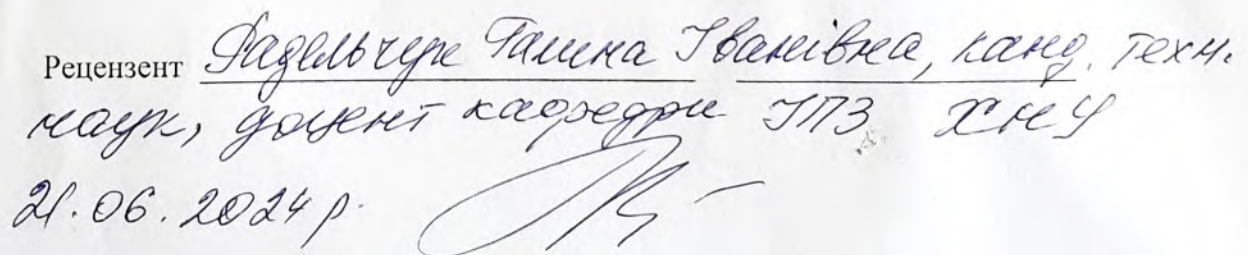 Рецензент Радельчук Галина Іванівна, канд. техн.
наук, доцент кафедри ІПЗ ХНУ
21.06.2024 р.